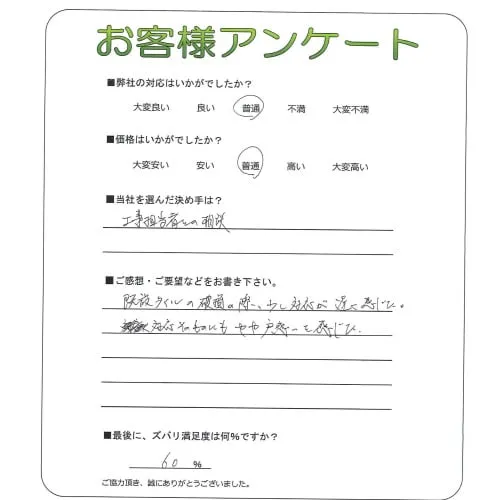 お客様アンケート
■弊社の対応はいかがでしたか？
大変良い 良い 普通 不満 大変不満
■価格はいかがでしたか？
大変安い 安い 普通 高い 大変高い
■当社を選んだ決め手は？
工事担当者との相談
■ご感想・ご要望などをお書き下さい。
既設タイルの破損の際、少し対応が遅く感じた。
対応そのものにもやや戸惑いを感じた.
■最後に、ズバリ満足度は何%ですか？
60 %
ご協力頂き、誠にありがとうございました。